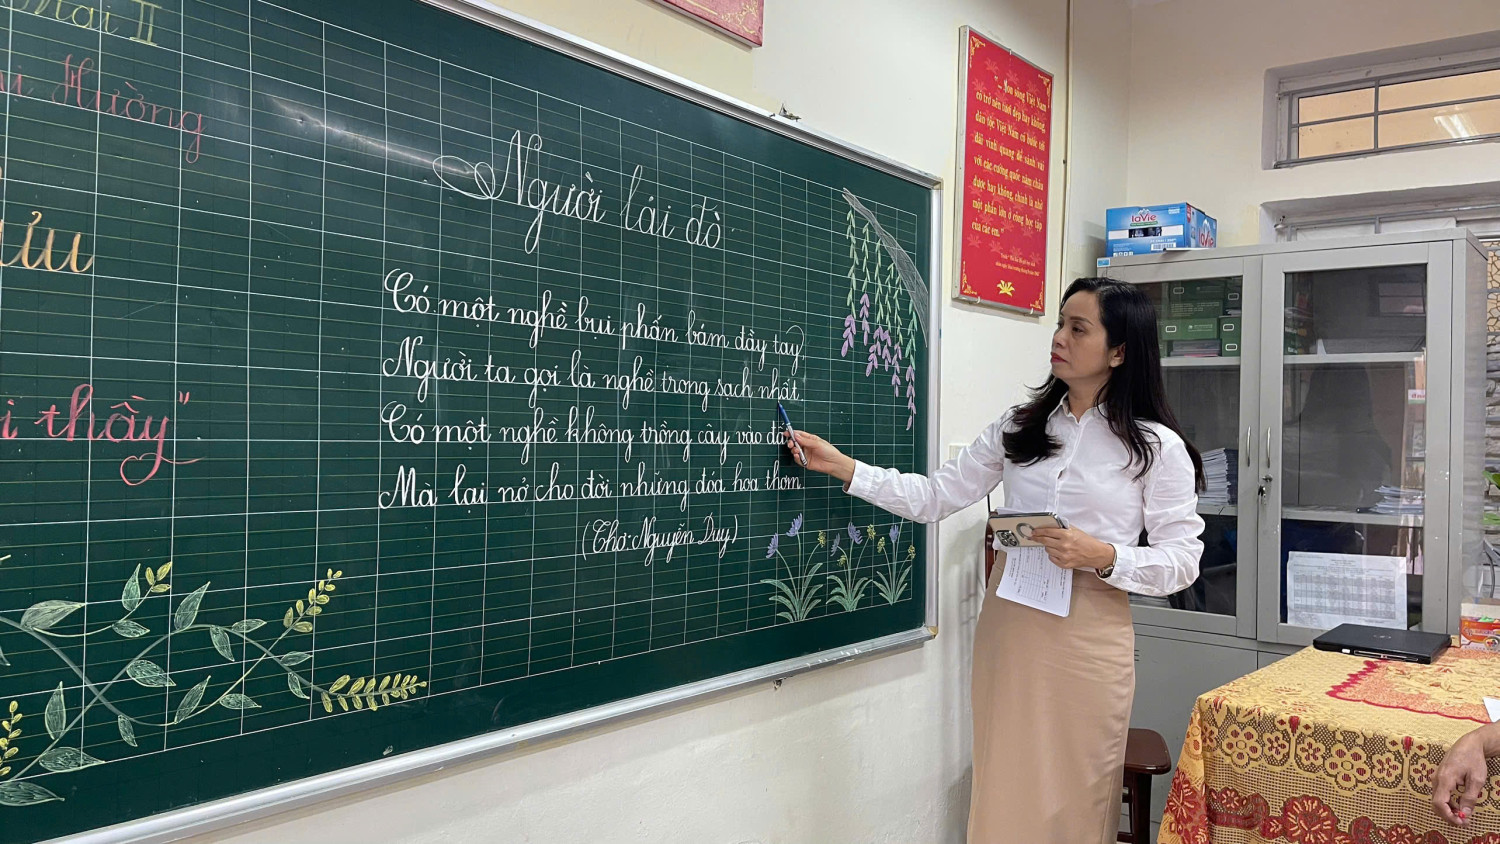 Mai II
Hường
ửu
i thầy"
Người lái đò
Có một nghề bụi phấn bám đầy tay
Người ta gọi là nghề trong sạch nhất.
Có một nghề không trồng cây vào đấ
Mà lại nở cho đời những đóa hoa thơm
(Thơ: Nguyễn Duy)
"... Non sông Việt Nam
có trở nên tươi đẹp hay không,
dân tộc Việt Nam có bước tới
đài vinh quang để sánh vai
với các cường quốc năm châu
được hay không, chính là nhờ
một phần lớn ở công học tập
của các em."
LaVie